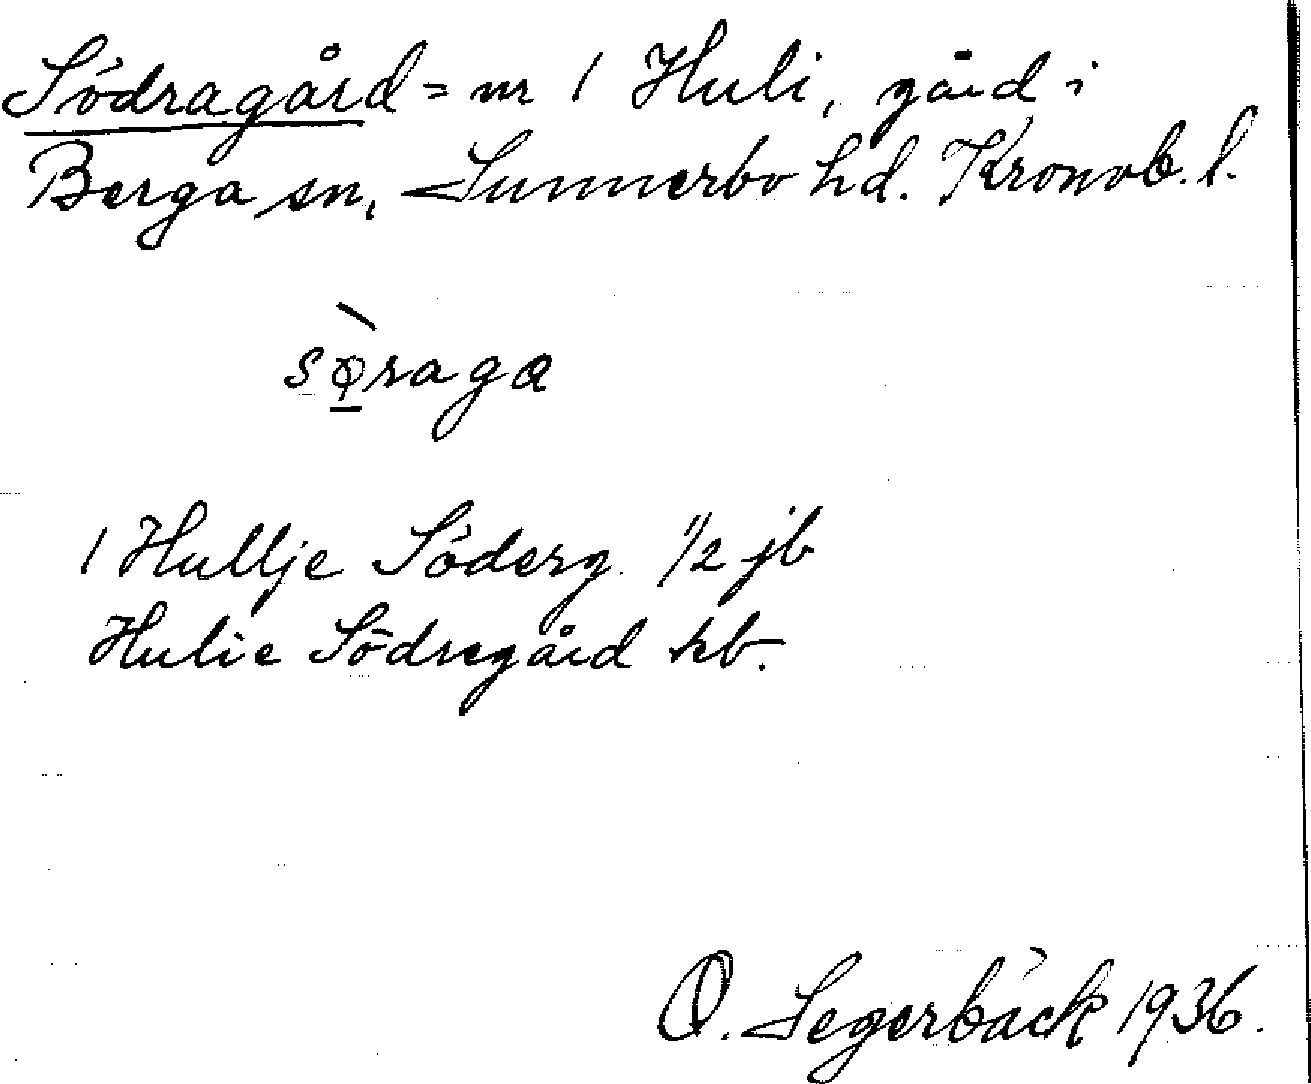 Södragård = nr 1 Huli, gård i
Berga sn, Sunnerbo hd. Kronob. l.
sø̀raga
1 Hullje Söderg. 1/2 jb
Hulie Södregård kb.
O. Segerbäck 1936.